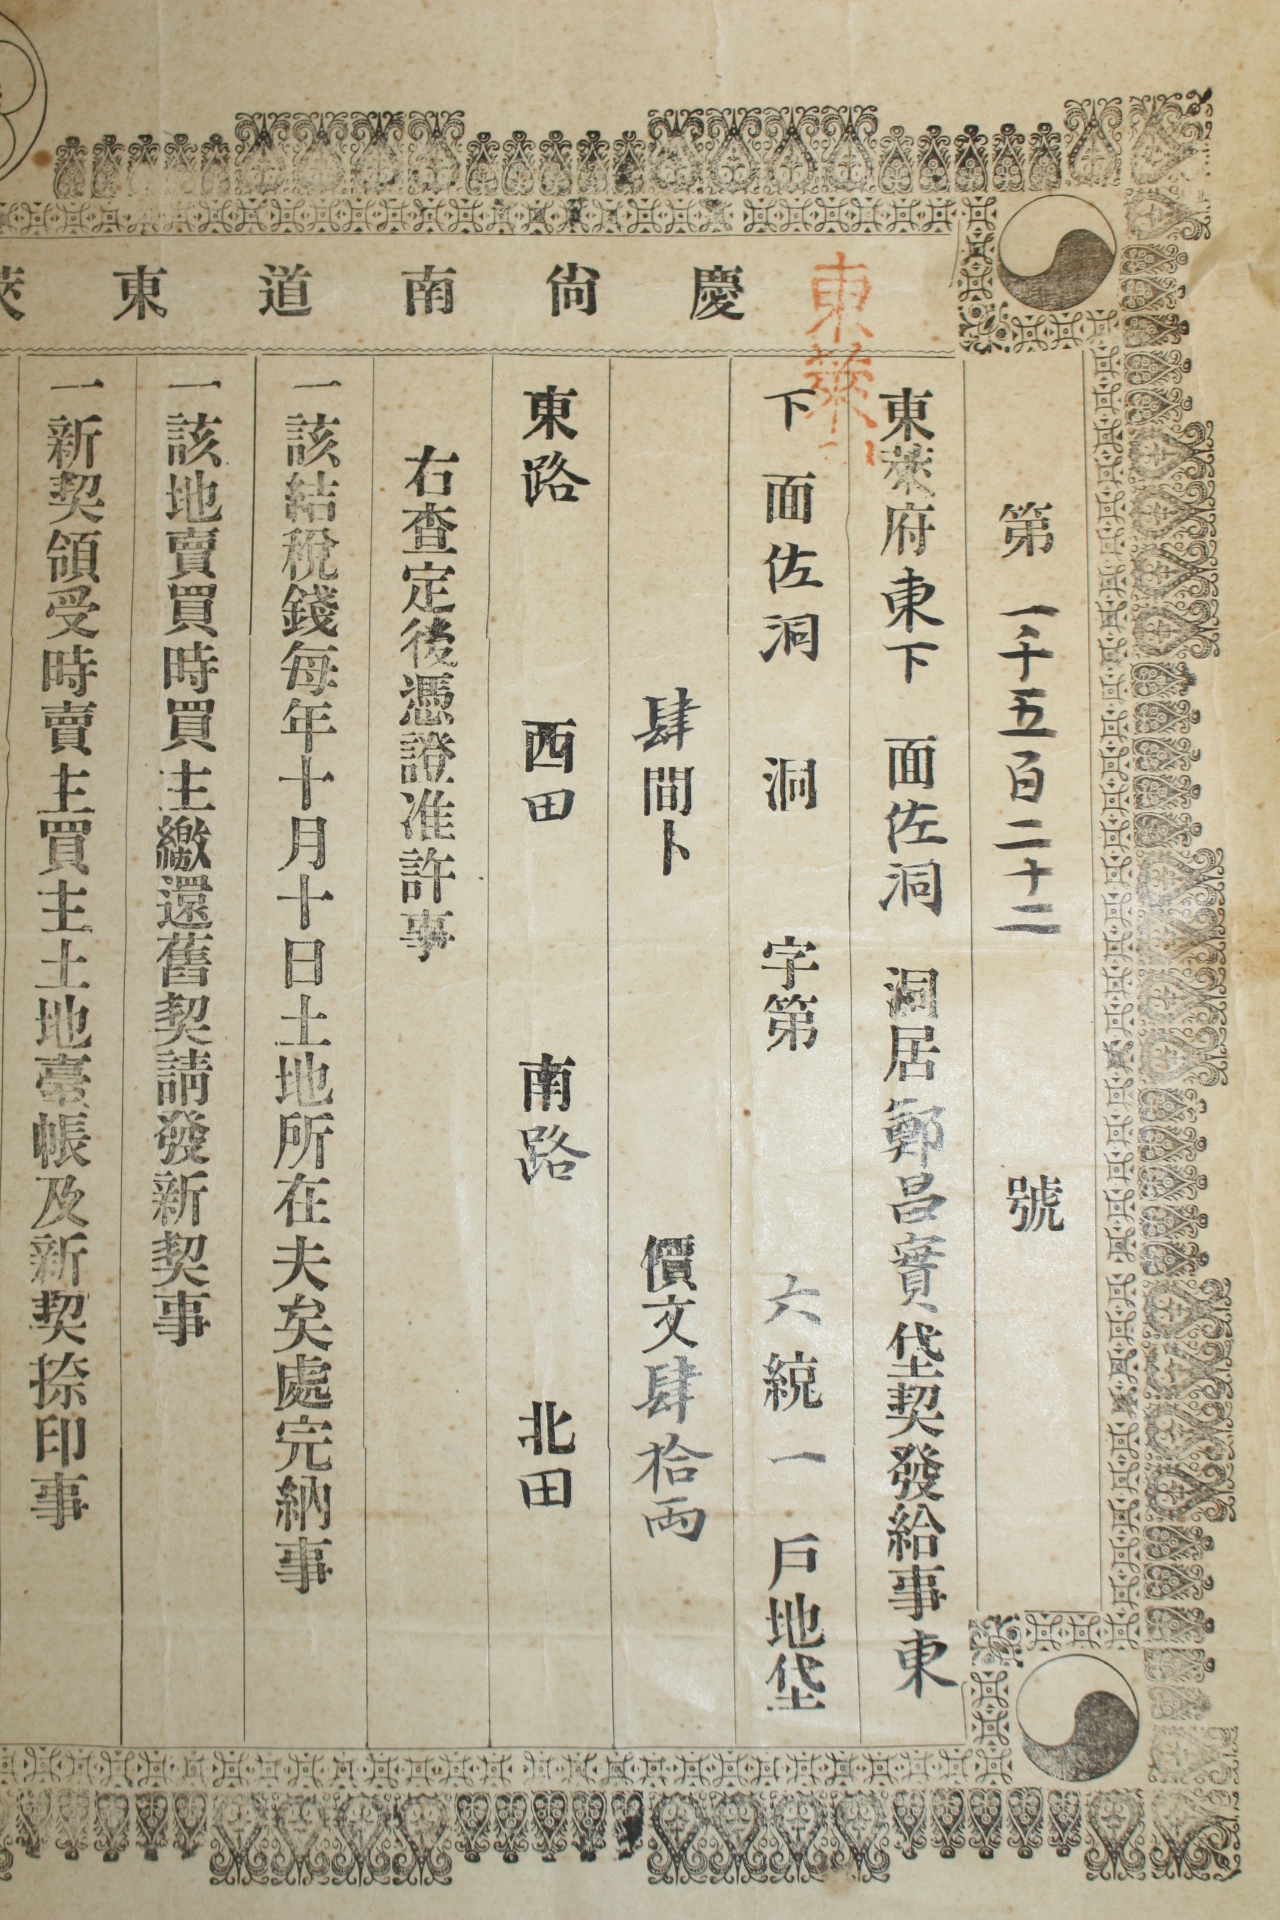 慶尙南道東萊
東萊
第一千五百二十二號
東萊府東下面佐洞洞居鄭昌實垈契發給事東
下面佐洞洞字第六統一戶地垈
肆間卜價文肆拾兩
東路西田南路北田
右查定後憑證准許事
一該結稅錢每年十月十日土地所在夫矣處完納事
一該地賣買時買主繳還舊契請發新契事
一新契領受時賣主買主土地臺帳及新契捺印事